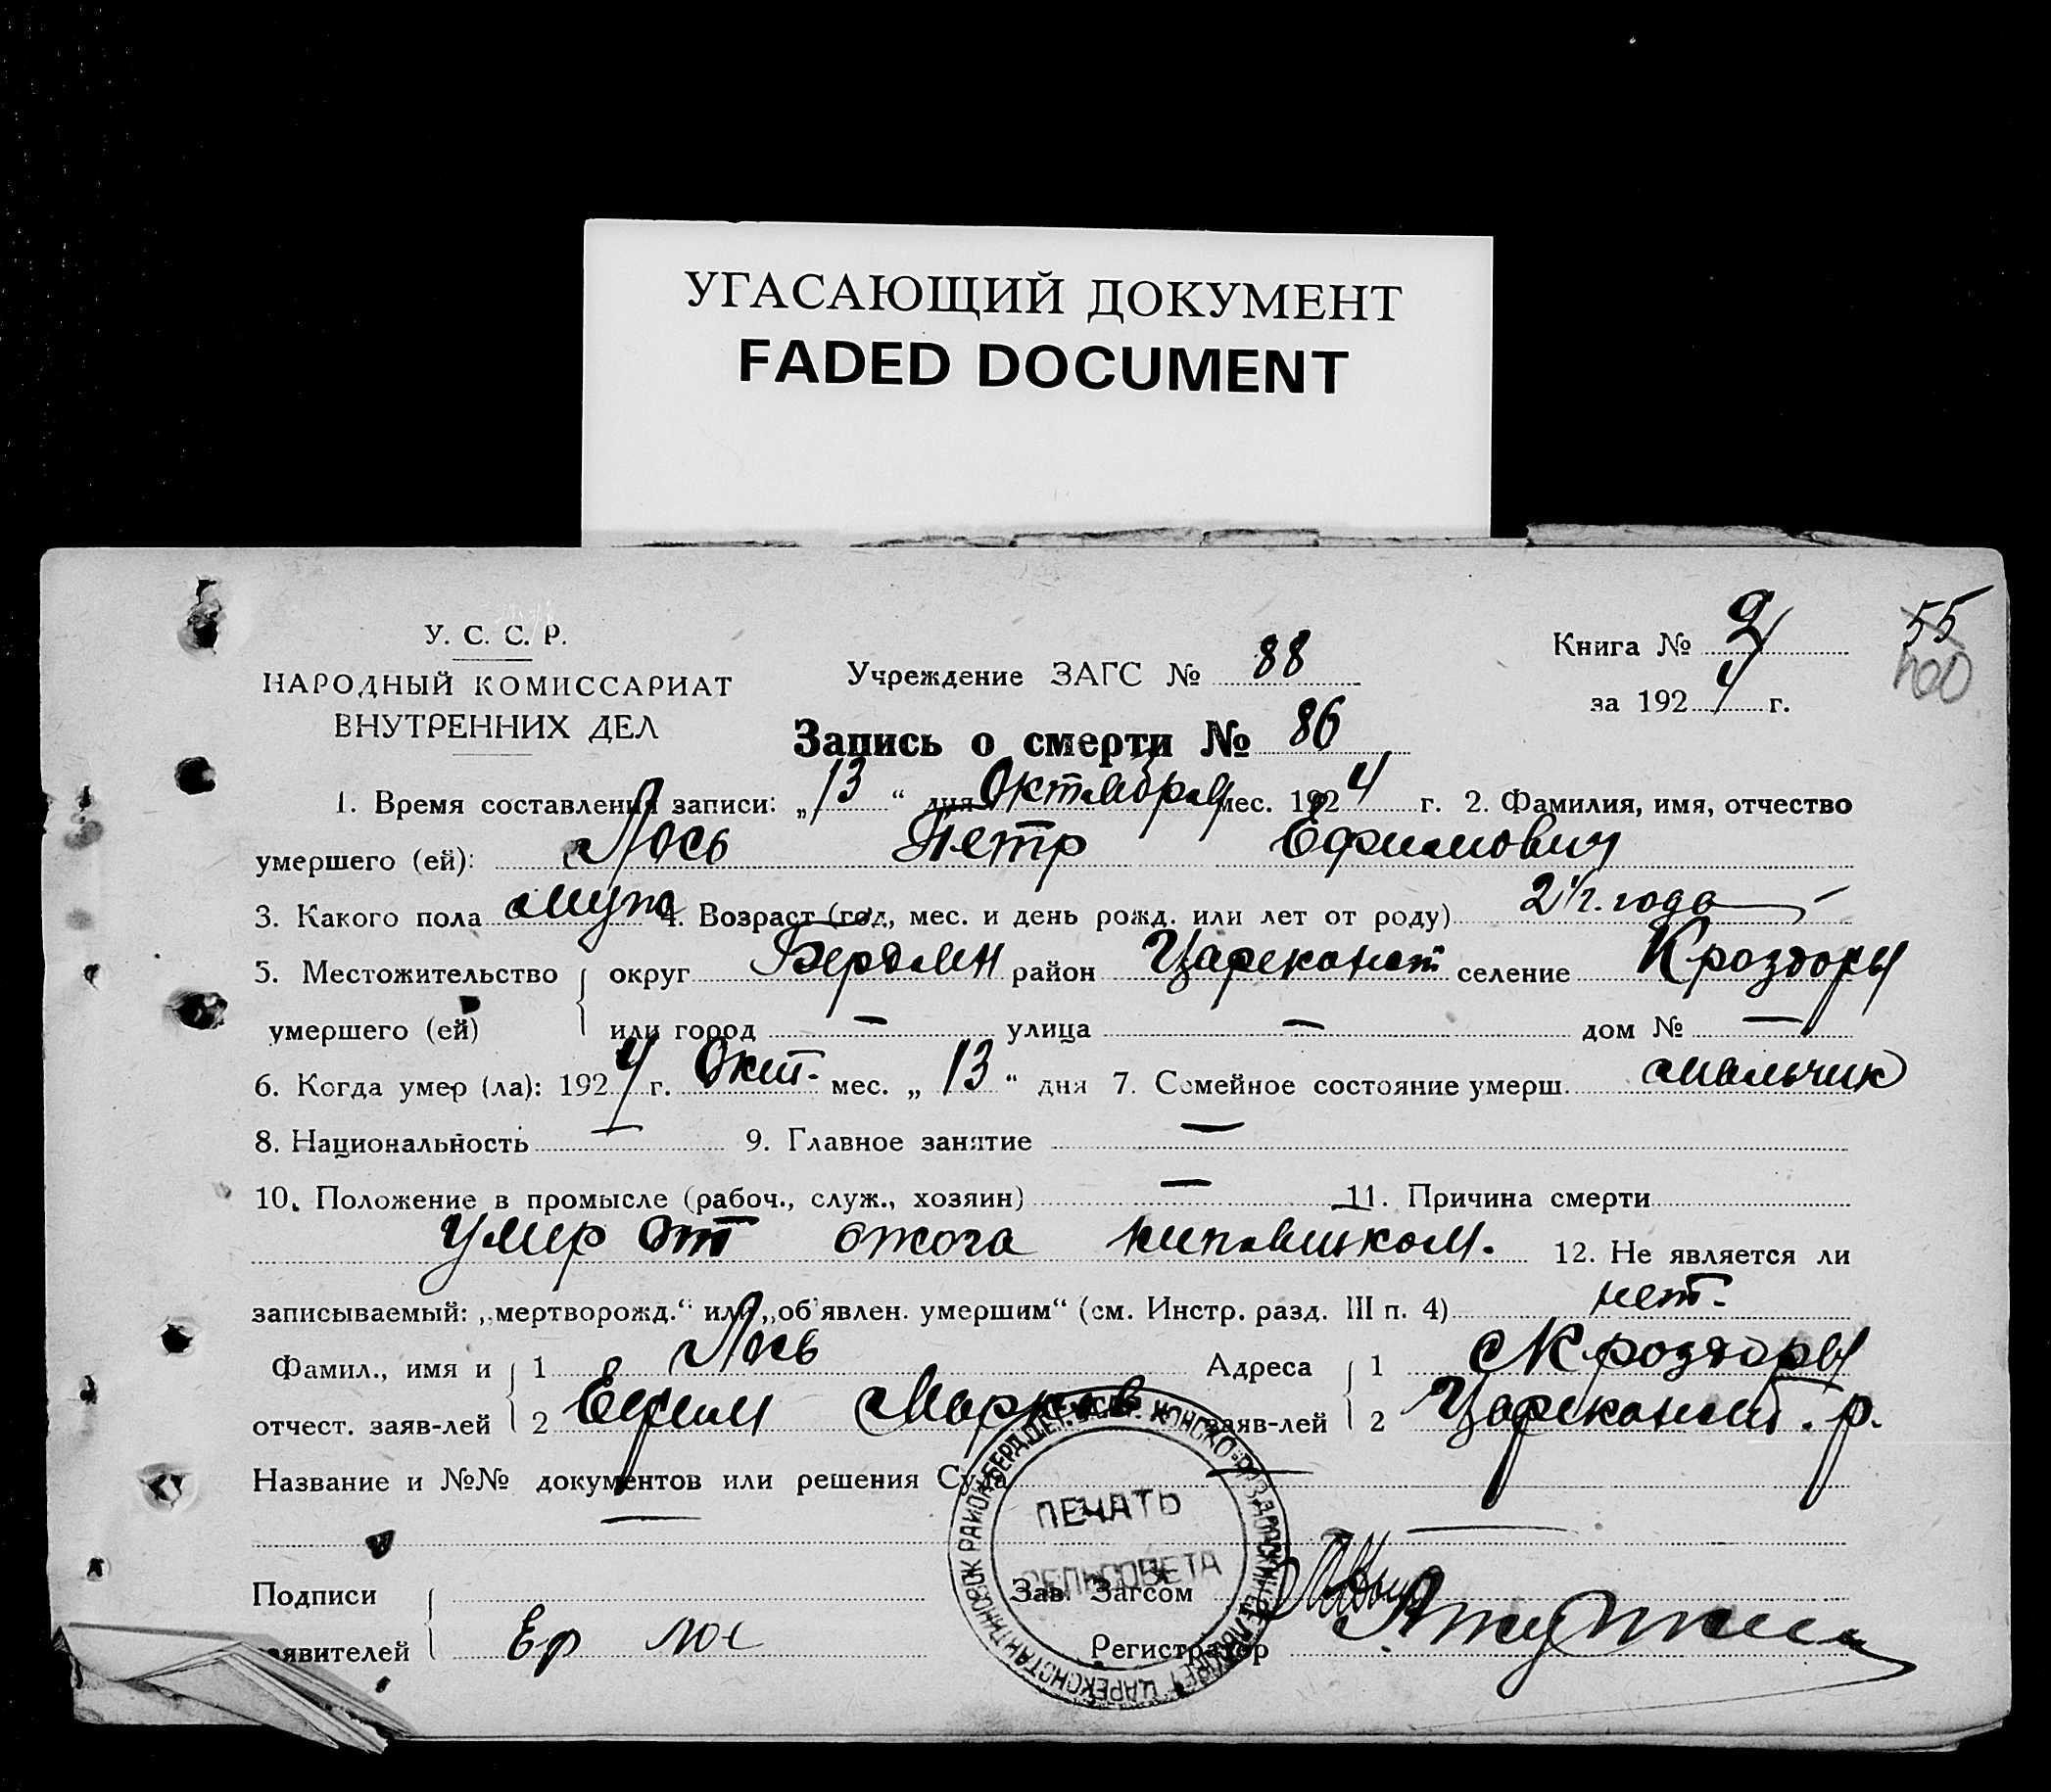 УГАСАЮЩИЙ ДОКУМЕНТ
FADED DOCUMENT
55
400
У. С. С. Р.
НАРОДНЫЙ КОМИССАРИАТ
ВНУТРЕННИХ ДЕЛ
Учреждение ЗАГС № 88
Книга № 2
за 1924 г.
Запись о смерти № 86
1. Время составления записи: „13“ дня Октября мес. 1924 г. 2. Фамилия, имя, отчество
умершего (ей): Лось Петр Ефимович
3. Какого пола муж 4. Возраст (год, мес. и день рожд. или лет от роду) 2 1/2 года
5. Местожительство округ Бердян район Цареконст селение Кроздоры
умершего (ей) или город — улица — дом № —
6. Когда умер (ла): 1924 г. Окт. мес. „13“ дня 7. Семейное состояние умерш. мальчик
8. Национальность — 9. Главное занятие —
10. Положение в промысле (рабоч., служ., хозяин) — 11. Причина смерти
Умер от ожога кипятком. 12. Не является ли
записываемый: „мертворожд.“ или „об'явлен. умершим“ (см. Инстр. разд. III п. 4) нет.
Фамил., имя и 1 Лось Адреса 1 с Кроздоры
отчест. заяв-лей 2 Ефим Марков заяв-лей 2 Цареконст. р.
Название и №№ документов или решения Суда —
— —
ПЕЧАТЬ
СЕЛЬСОВЕТА
Подписи Зав. Загсом
заявителей Еф Лос Регистратор